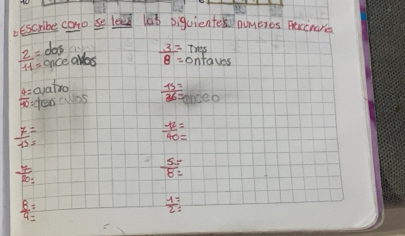 Escribe como se lee los siguientes numeros Fraccinarea
2/11 = dos
= once avos
3/8 = Tres
= ontavos
4/10 = cuatro
avos
15/36 =
7/15 =
12/40 =
=
5/8 =
8/9 =
1/2 =